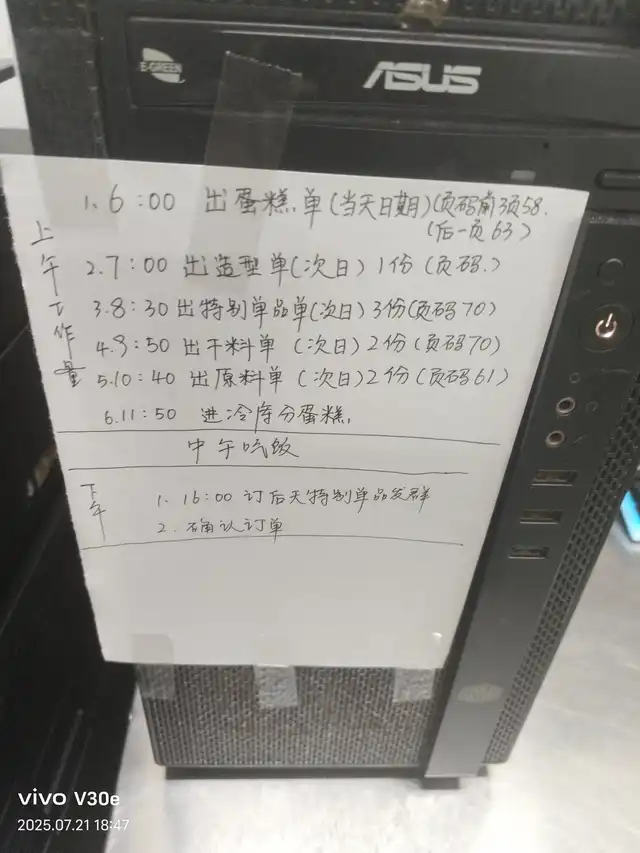 E-GREEN
ASUS
1. 6:00 出蛋糕单(当天日期)(页码前3页58.
(后一页63)
上午工作量
2. 7:00 出造型单(次日) 1份 (页码.)
3. 8:30 出特别单品单(次日) 3份(页码70)
4. 9:50 出干料单 (次日) 2份 (页码70)
5. 10:40 出原料单 (次日) 2份 (页码61)
6. 11:50 进冷库分蛋糕.
中午吃饭
下午
1. 16:00 订后天特别单品发群
2. 确认订单
vivo V30e
2025.07.21 18:47